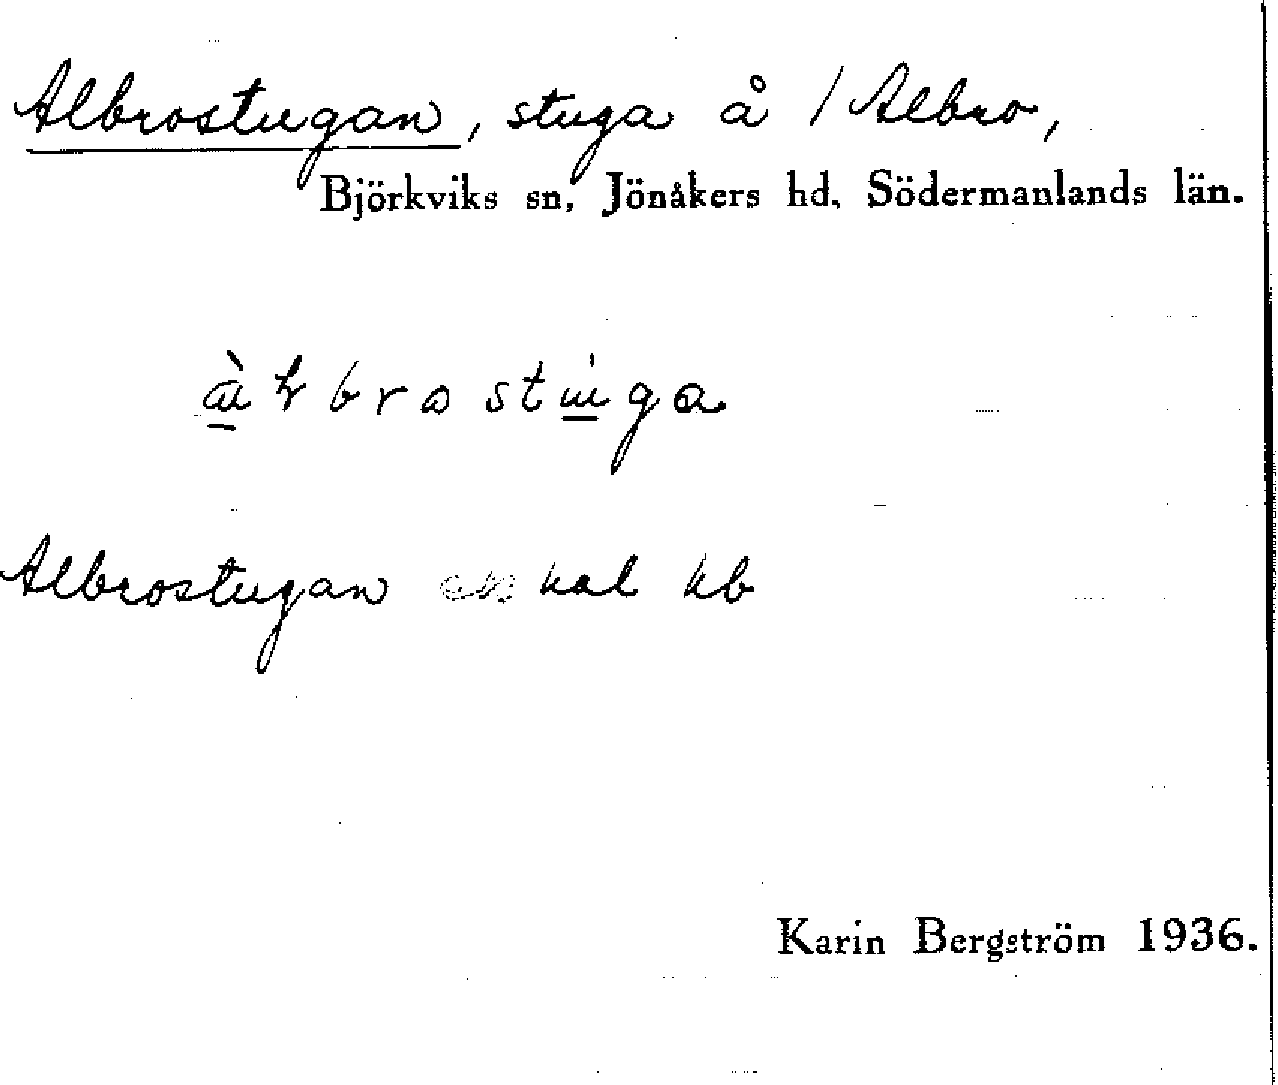 Albrostugan, stuga å / Albro,
Björkviks sn, Jönåkers hd, Södermanlands län.
Albrostugan hal kb
Karin Bergström 1936.